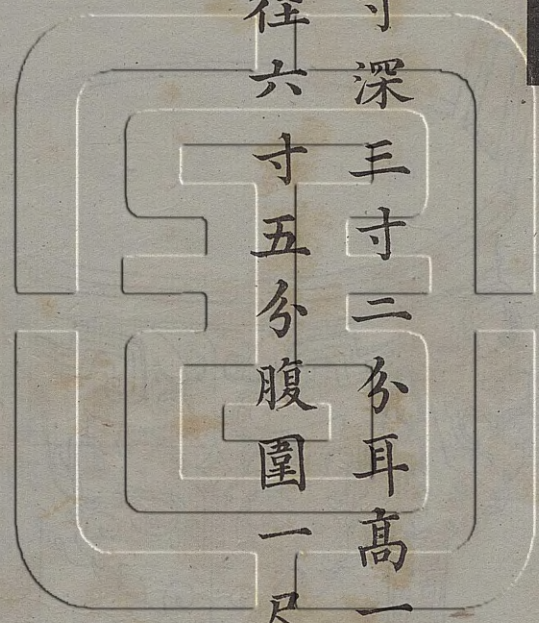 寸深三寸二分耳高一
徑六寸五分腹圍一尺